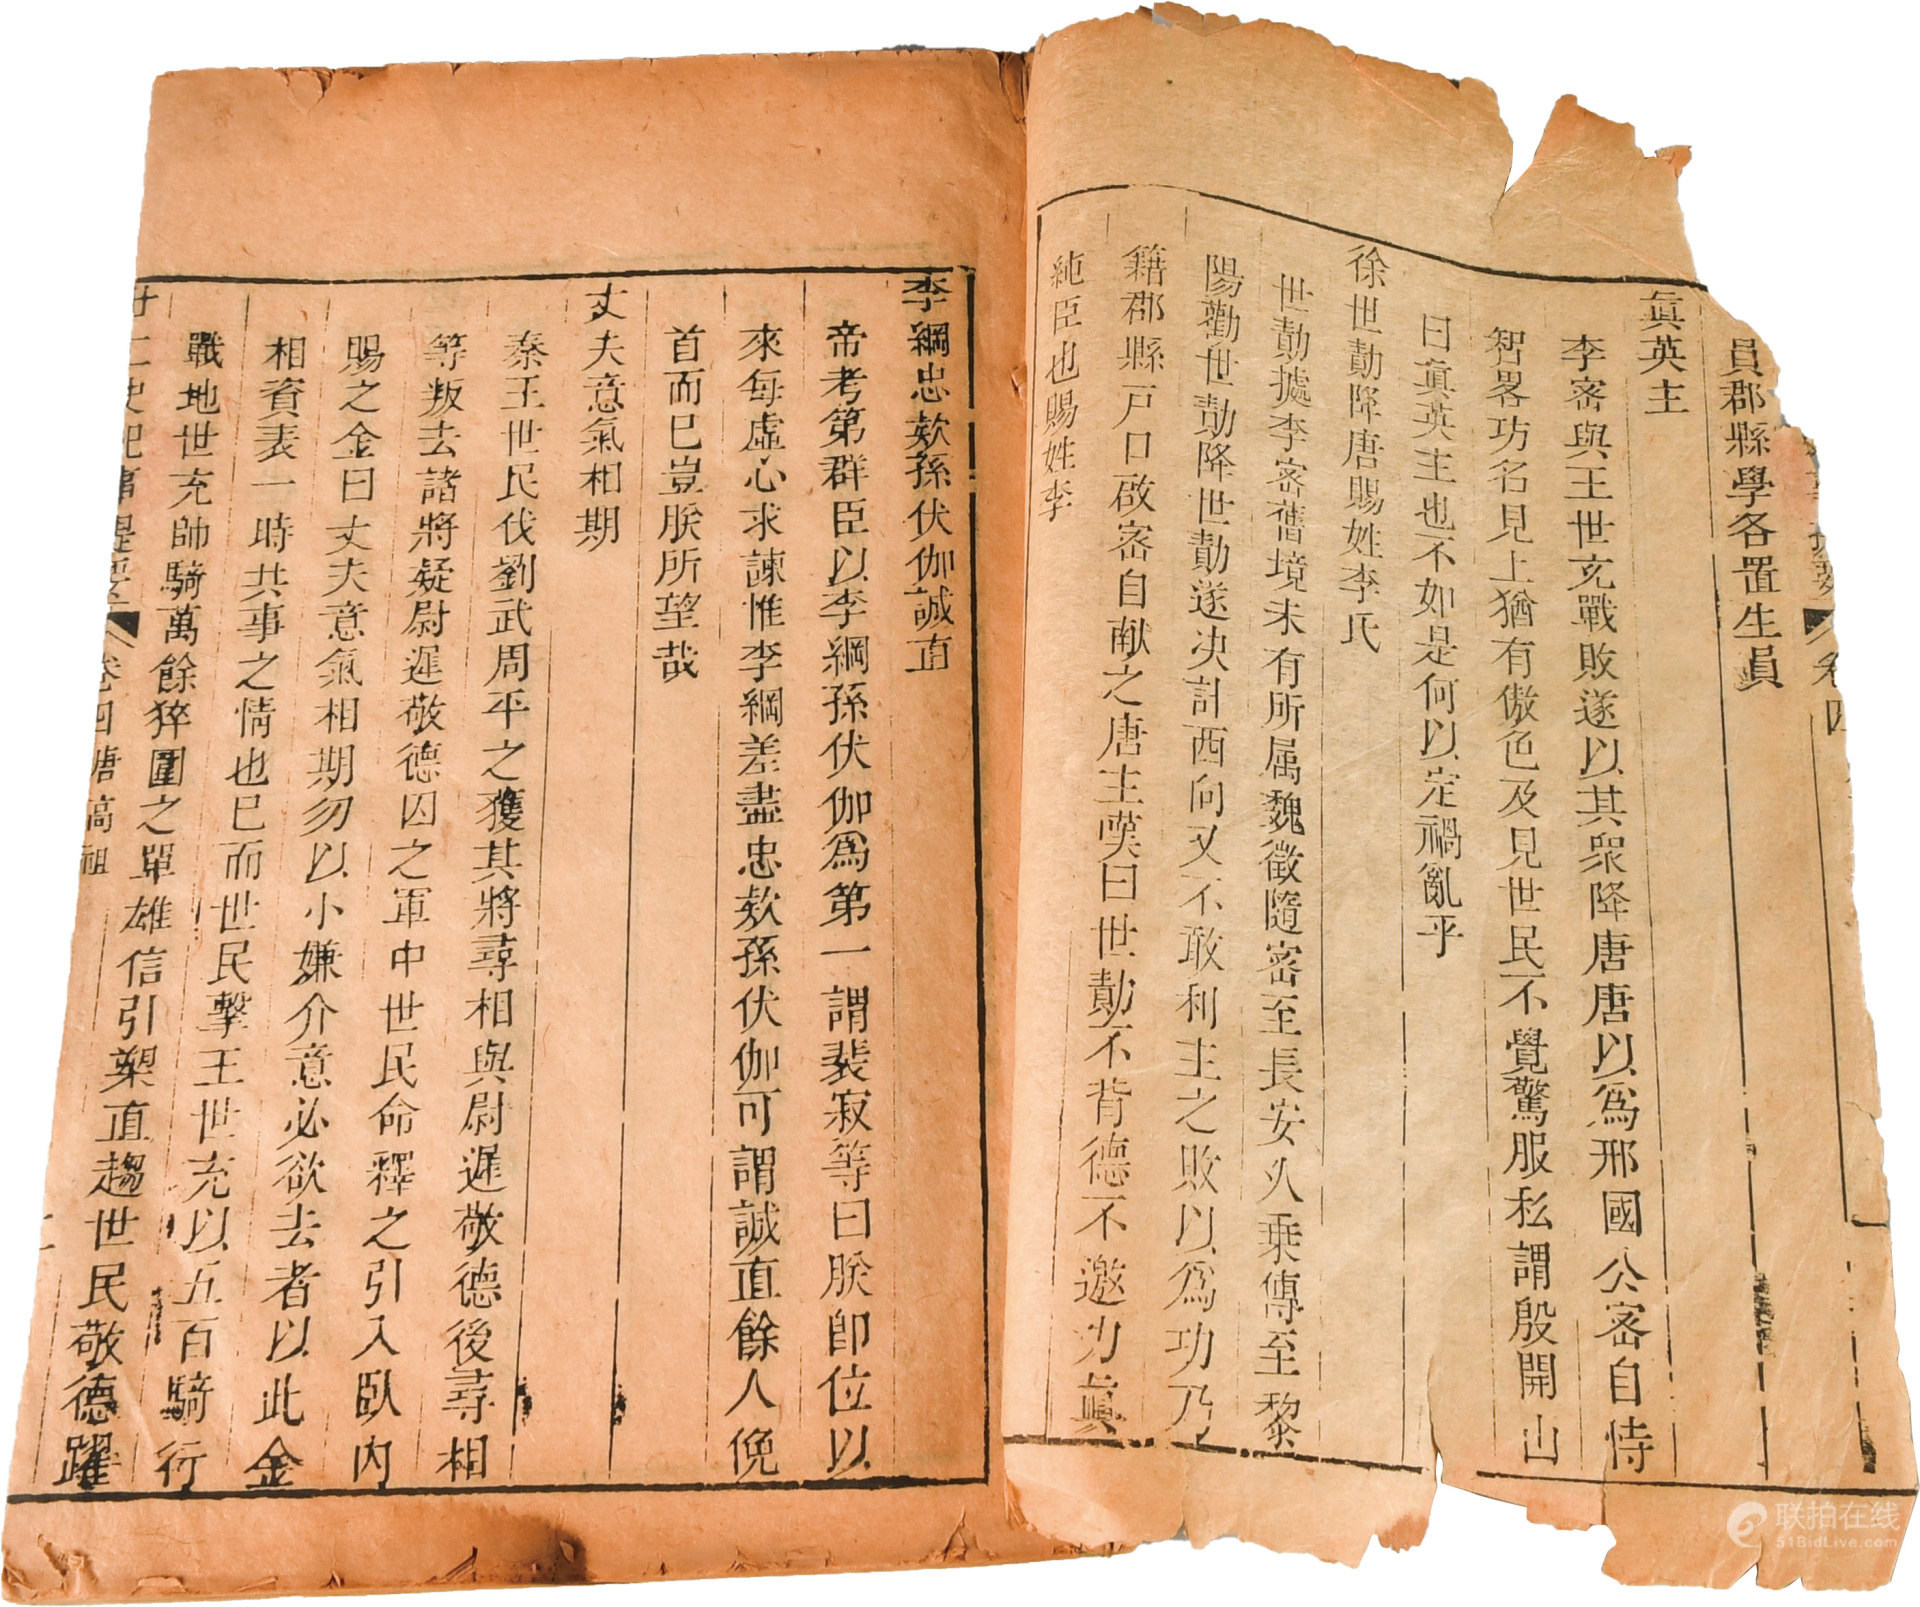 員郡縣學各置生員
眞英主
李密與王世充戰敗遂以其衆降唐唐以爲邢國公密自恃
智畧功名見上猶有傲色及見世民不覺驚服私謂殷開山
曰眞英主也不如是何以定禍亂乎
徐世勣降唐賜姓李氏
世勣據李密舊境未有所属魏徵隨密至長安乆乗傳至黎
陽勸世勣降世勣遂决計西向又不敢利主之敗以爲功乃
籍郡縣戸口啟密自献之唐主嘆曰世勣不背德不邀功眞
純臣也賜姓李
李綱忠欵孫伏伽誠直
帝考第群臣以李綱孫伏伽爲第一謂裴寂等曰朕即位以
來每虛心求諫惟李綱差盡忠欵孫伏伽可謂誠直餘人俛
首而巳豈朕所望哉
丈夫意氣相期
秦王世民伐劉武周平之獲其將尋相與尉遲敬德後尋相
等叛去諸將疑尉遲敬德囚之軍中世民命釋之引入臥内
賜之金曰丈夫意氣相期勿以小嫌介意必欲去者以此金
相資表一時共事之情也巳而世民擊王世充以五百騎行
戰地世充帥騎萬餘猝圍之單雄信引槊直趨世民敬德躍
廿二史記事提要 卷四唐高祖
联拍在线
518BidLive.com